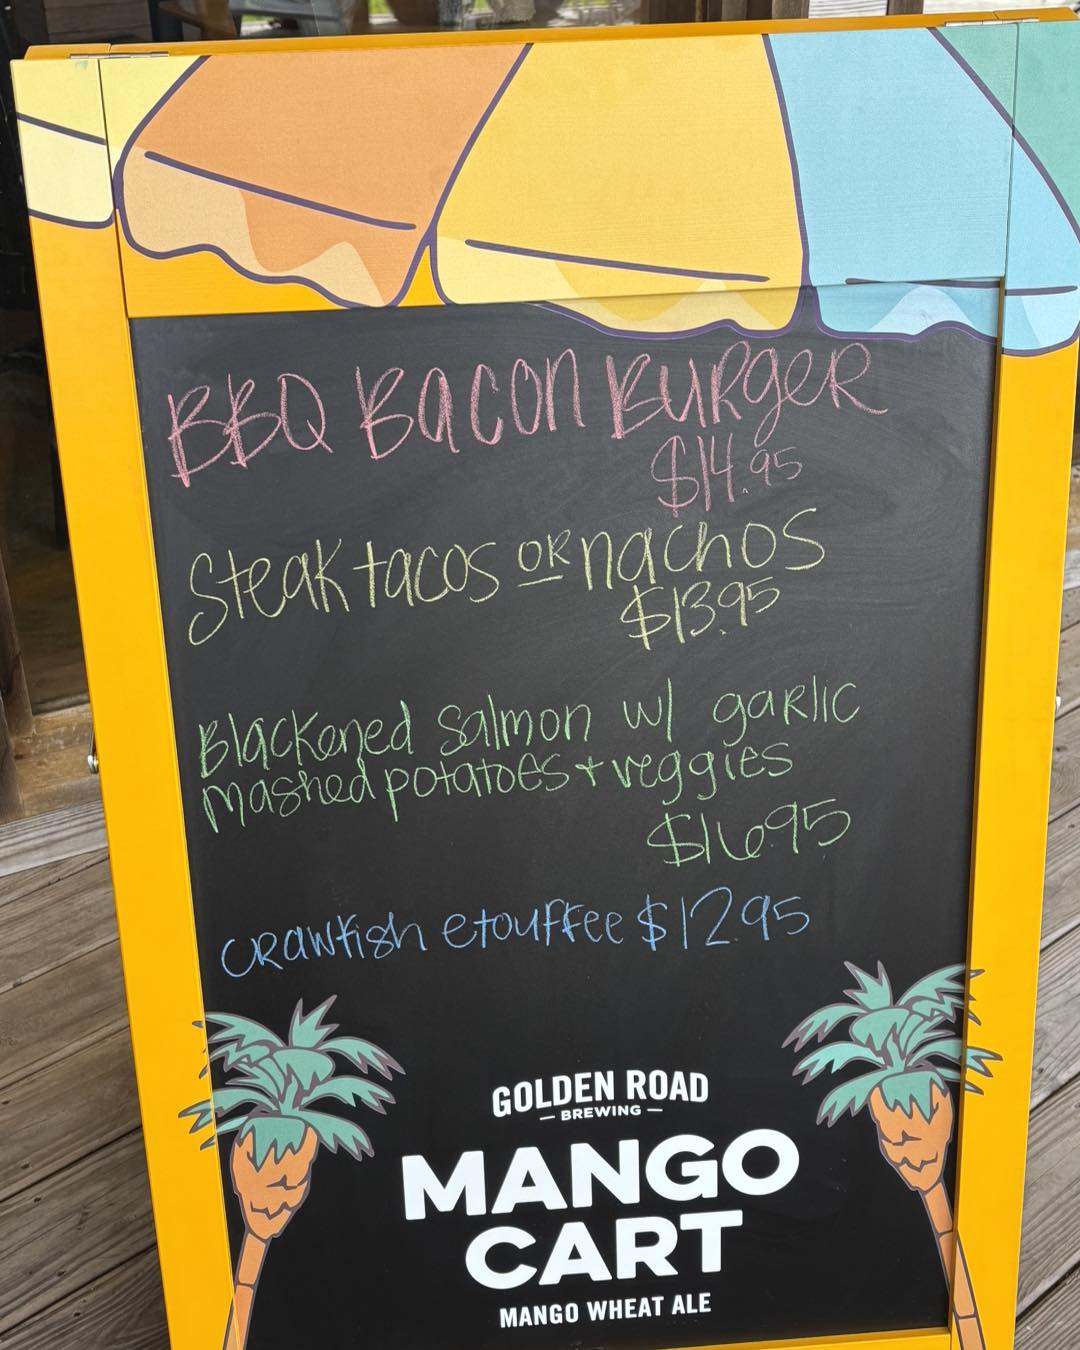 BBQ Bacon Burger
$14.95
Steak tacos or nachos
$13.95
Blackened Salmon w/ garlic
mashed potatoes + veggies
$16.95
crawfish etouffee $12.95
GOLDEN ROAD
— BREWING —
MANGO
CART
MANGO WHEAT ALE